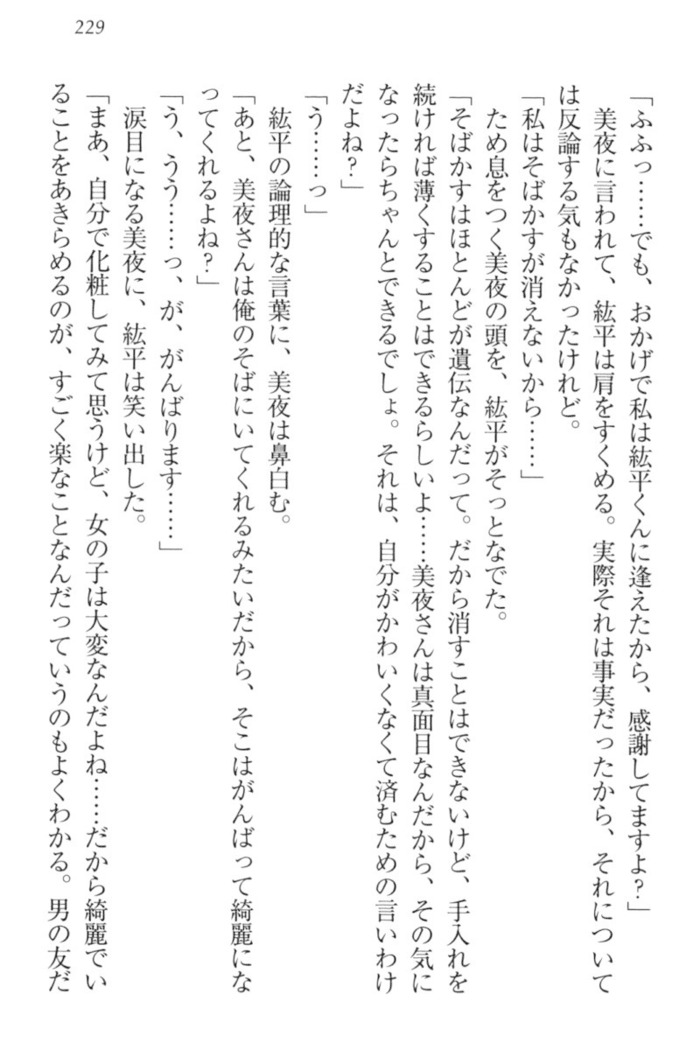 229
「ふふっ……でも、おかげで私は紘平くんに逢えたから、感謝してますよ？」
　美夜に言われて、紘平は肩をすくめる。実際それは事実だったから、それについて
は反論する気もなかったけれど。
「私はそばかすが消えないから……」
　ため息をつく美夜の頭を、紘平がそっとなでた。
「そばかすはほとんどが遺伝なんだって。だから消すことはできないけど、手入れを
続ければ薄くすることはできるらしいよ……美夜さんは真面目なんだから、その気に
なったらちゃんとできるでしょ。それは、自分がかわいくなくて済むための言いわけ
だよね？」
「う……っ」
　紘平の論理的な言葉に、美夜は鼻白む。
「あと、美夜さんは俺のそばにいてくれるみたいだから、そこはがんばって綺麗にな
ってくれるよね？」
「う、うう……っ、が、がんばります……」
　涙目になる美夜に、紘平は笑い出した。
「まあ、自分で化粧してみて思うけど、女の子は大変なんだよね……だから綺麗でい
ることをあきらめるのが、すごく楽なことなんだっていうのもよくわかる。男の友だ